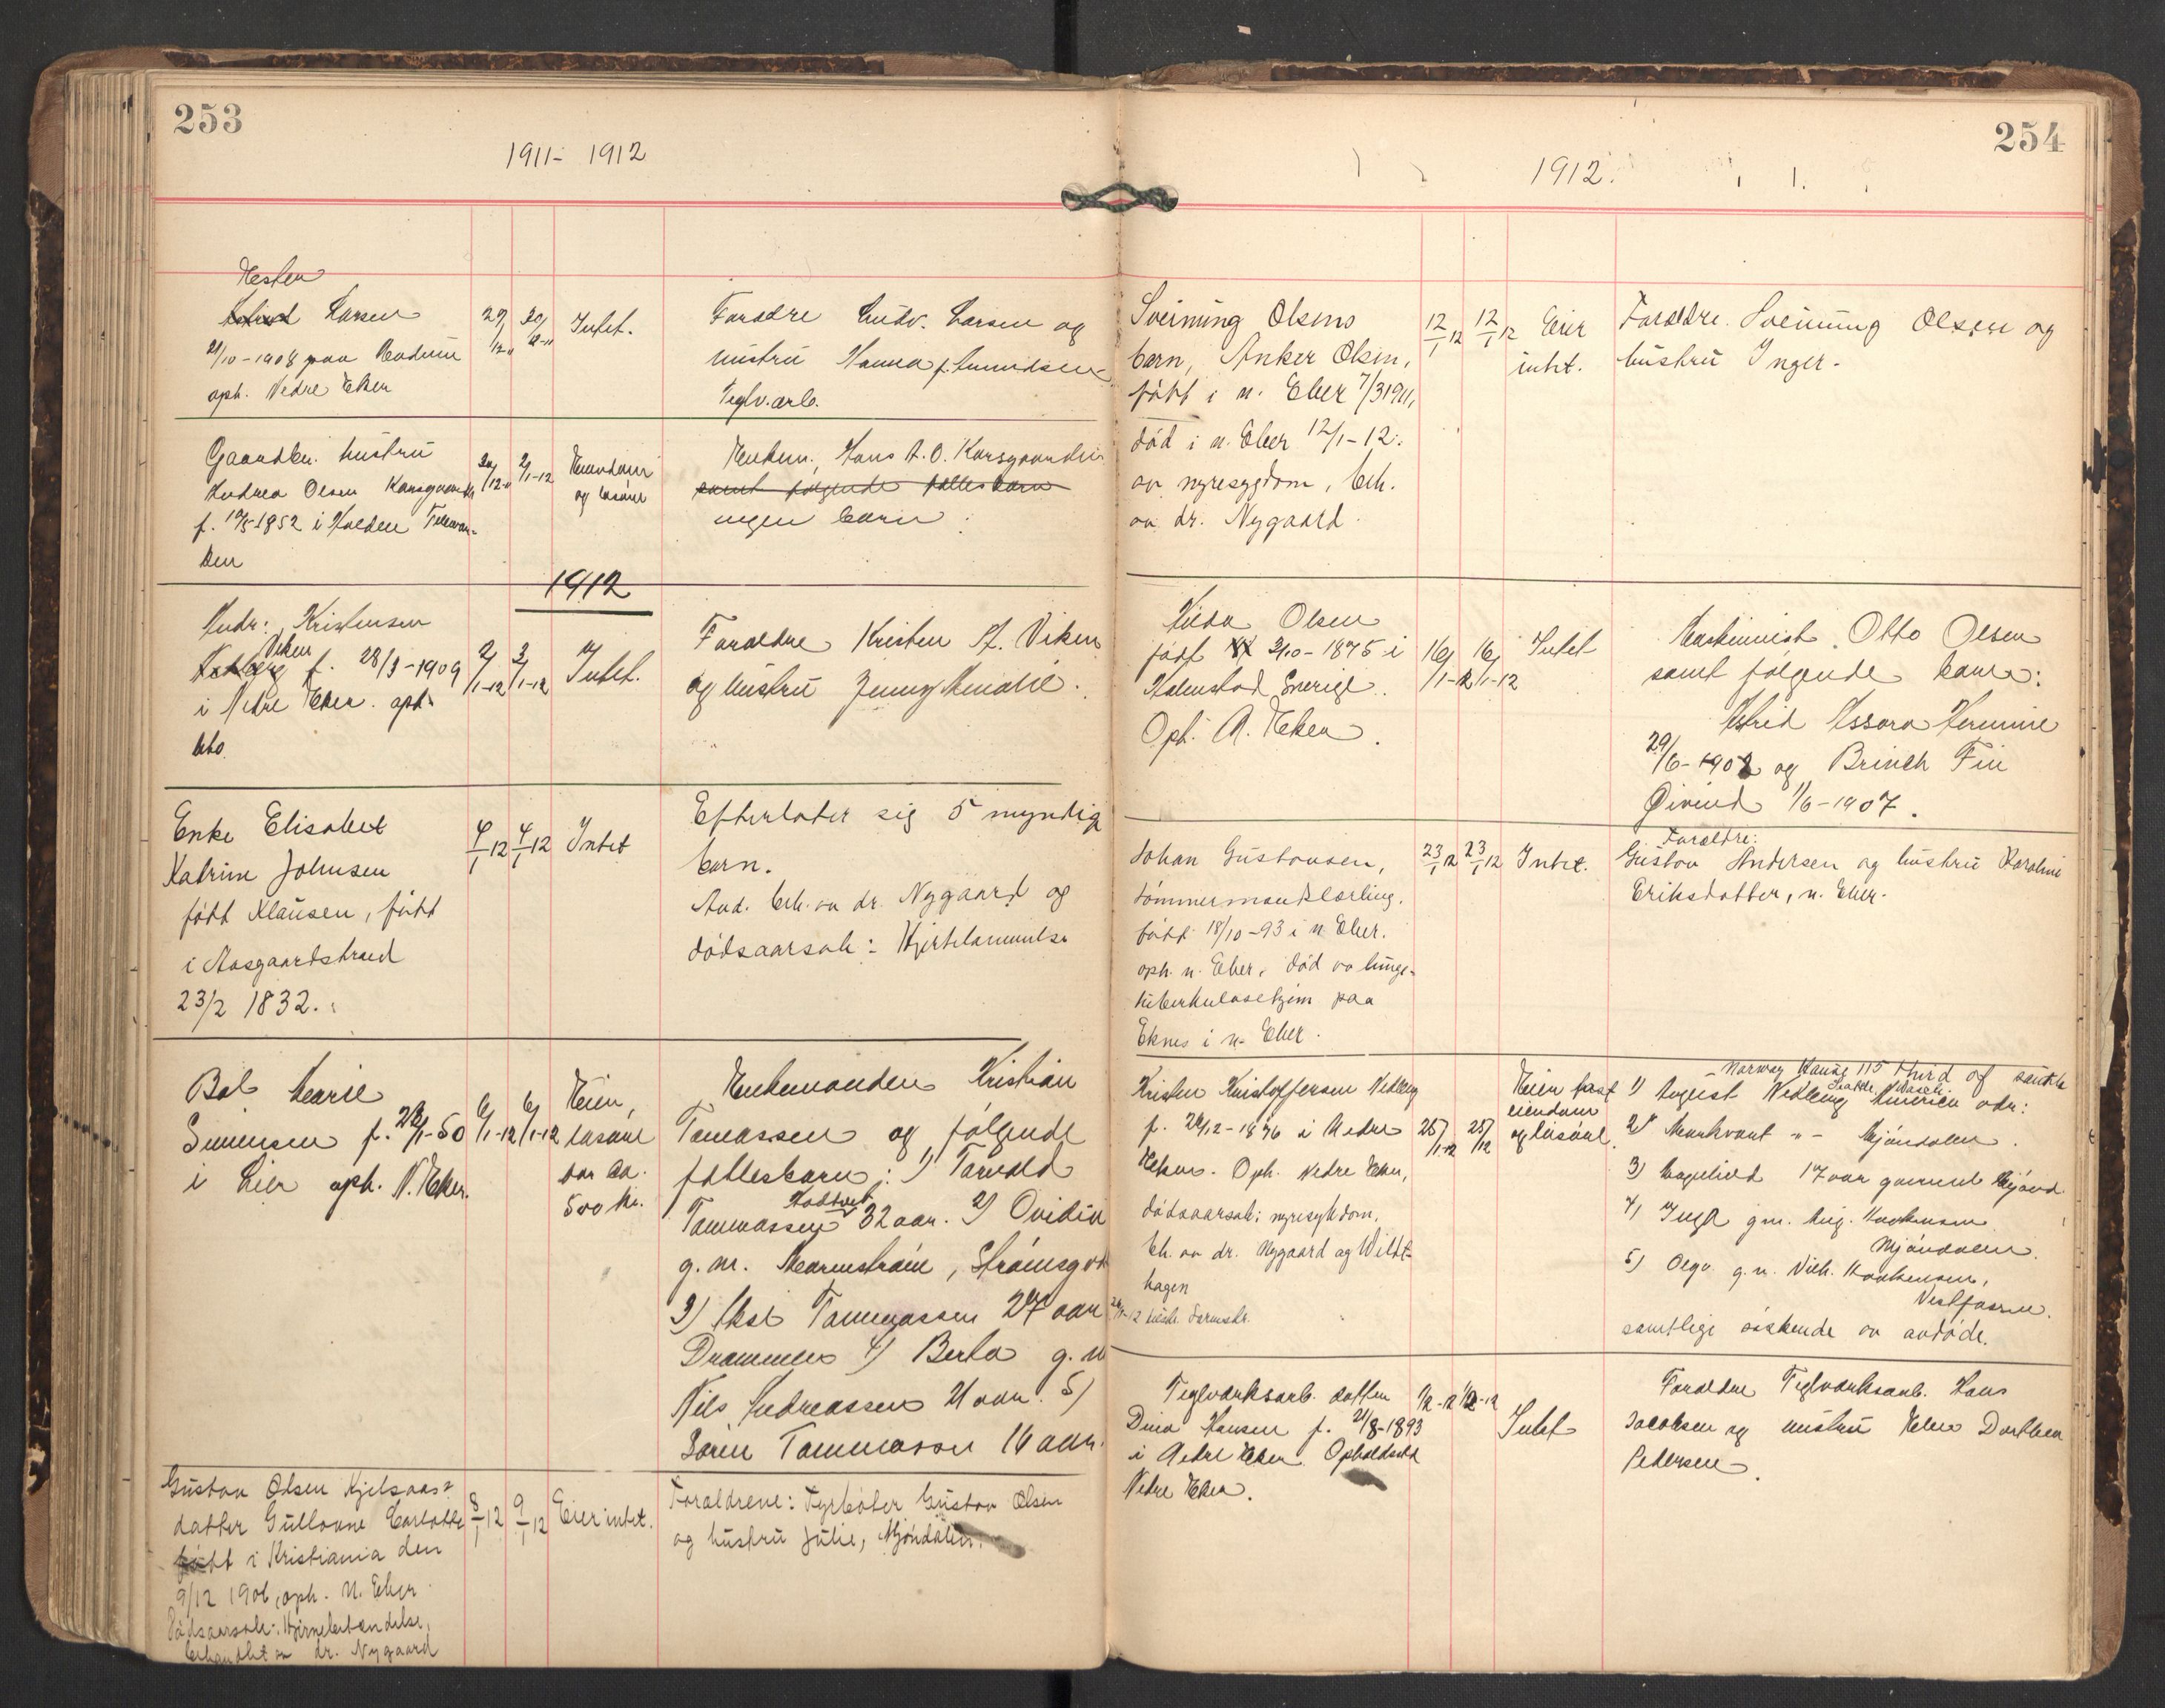 253
1911- 1912
Larsen
21/10-1908 paa
oph. Nedre Eker
29/12-11
30/12-11
Intet.
Foraldre Ludv. Larsen og
hustru Hanna f. Amundsen
Teglv. arb.
Gaardbr. hustru
Andrea Olsen
f. 19/5-1852 i Holden Telemar-
ken
30/12-11
2/1-12
Eiendom
og løsøre
Enkem. Hans A. O.
samt følgende fællesbarn
ingen barn
1912
Andr. Kristensen
Viken
f. 28/3-1909
i Nedre Eker. oph.
dto.
2/1-12
3/1-12
Intet.
Foraldre Kristen A. Viken
og hustru Jenny Amalie.
Enke Elisabet
Katrine Johnsen
født Klausen, født
i Aasgaardstrand
23/2 1832.
4/1 12
4/1 12
Intet
Efterlater sig 5 myndige
barn.
Avd. beh. av dr. Nygaard og
dødsaarsak: Hjertelammelse
Marie
Simensen f. 28/1-50
i Lier oph. N. Eker.
6/1-12
6/1-12
Eier
løsøre
for ca.
500 kr.
Enkemanden Kristian
Tomassen og følgende
fællesbarn: 1) Torvald
Tommassen 32 aar. 2) Ovidia
g. m.
3) Aksel Tommassen 27 aar
Drammen 4) Berta g. m
Nils Andreassen 21 aar. 5)
Søren Tommason 16 aar.
Gustav Olsen Kjelsaas
datter Gullovne Carlotte
født i Kristiania den
9/12 1906, oph. N. Eker.
Dødsaarsak: Hjernebetændelse,
behandlet av dr. Nygaard
8/1 12
9/1 12
Eier intet.
Foraldrene: Fyrbøter Gustav Olsen
og hustru Julie, Mjøndalen.
254
1912.
Sveinung Olsens
barn, Anker Olsen,
født i n. Eker 7/3 1911,
død i n. Eker 12/1-12.
av nyresygdom, beh.
av dr. Nygaard.
12/1 12
12/1 12
Eier
intet.
Foraldre. Sveinung Olsen og
hustru Inger.
Hilda Olsen
født 2/10-1875 i
Halmstad Sverige.
Oph. N. Eker.
16/1-12
16/1-12
Intet
Maskinist Otto Olsen
samt følgende barn:
Astrid Assora Hermine
29/6-1902 og Brinch Fin
Øivind 1/6-1907.
Johan Gustavsen,
tømmermandslærling.
født 18/10-93 i n. Eker.
oph. n. Eker. død av lunge-
tuberkulose hjem paa
Eknes i n. Eker.
23/1 12
23/1 12
Intet.
Foraldre:
Gustav Andersen og hustru Karoline
Eriksdatter, n. Eker.
Kristen Kristoffersen Vedberg
f. 24/12-1876 i Nedre
Eker. Oph. Nedre Eker,
dødsaarsak: nyresykdom,
beh. av dr. Nygaard og Wildt-
hagen
25/1-12
25/1 12
Eier fast
eiendom
og løsøre.
Norway House 115 Third of south
1) August Vedberg Amerika adr:
2) Markvart -"- Mjøndalen.
3) 17 aar gammel Mjønd.
4) Inga g.m. Aug. Haakensen
Mjøndalen.
5) Olga g.m. Vilh. Haakensen,
Vestfossen.
samtlige søskende av avdøde.
Teglværksarb. datter
Dina Hansen f. 21/8-1893
i Nedre Eker. Opholdsted
Nedre Eker.
1/2-12
1/2-12
Intet
Foraldre Teglværksarb. Hans
Jacobsen og hustru Helene Dorthea
Pedersen.